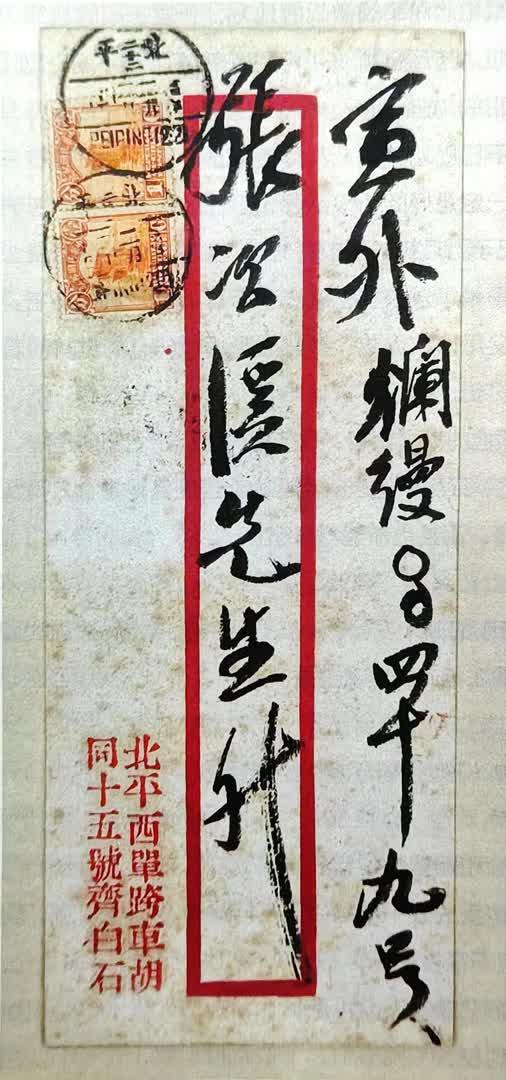 宣外爛縵四十九号
張次溪先生升
北平西單跨車胡
同十五號齊白石
平北
二十三
PEIPING